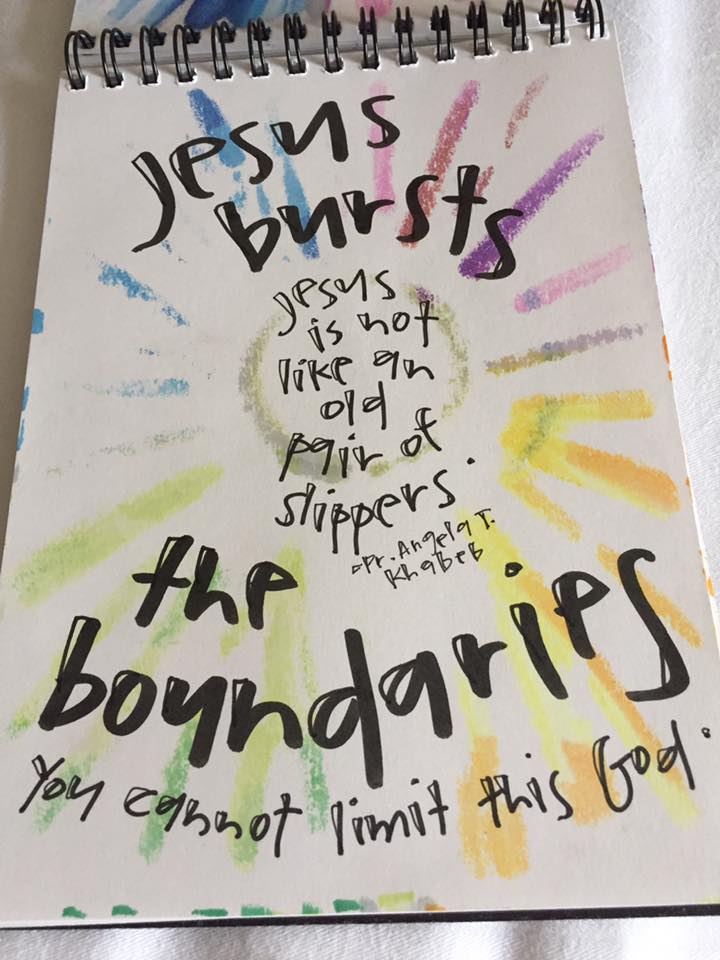 Jesus
bursts
Jesus
is not
like an
old
pair of
slippers.
-Pr. Angela T.
Khabeb
the
boundaries
You cannot limit this God.